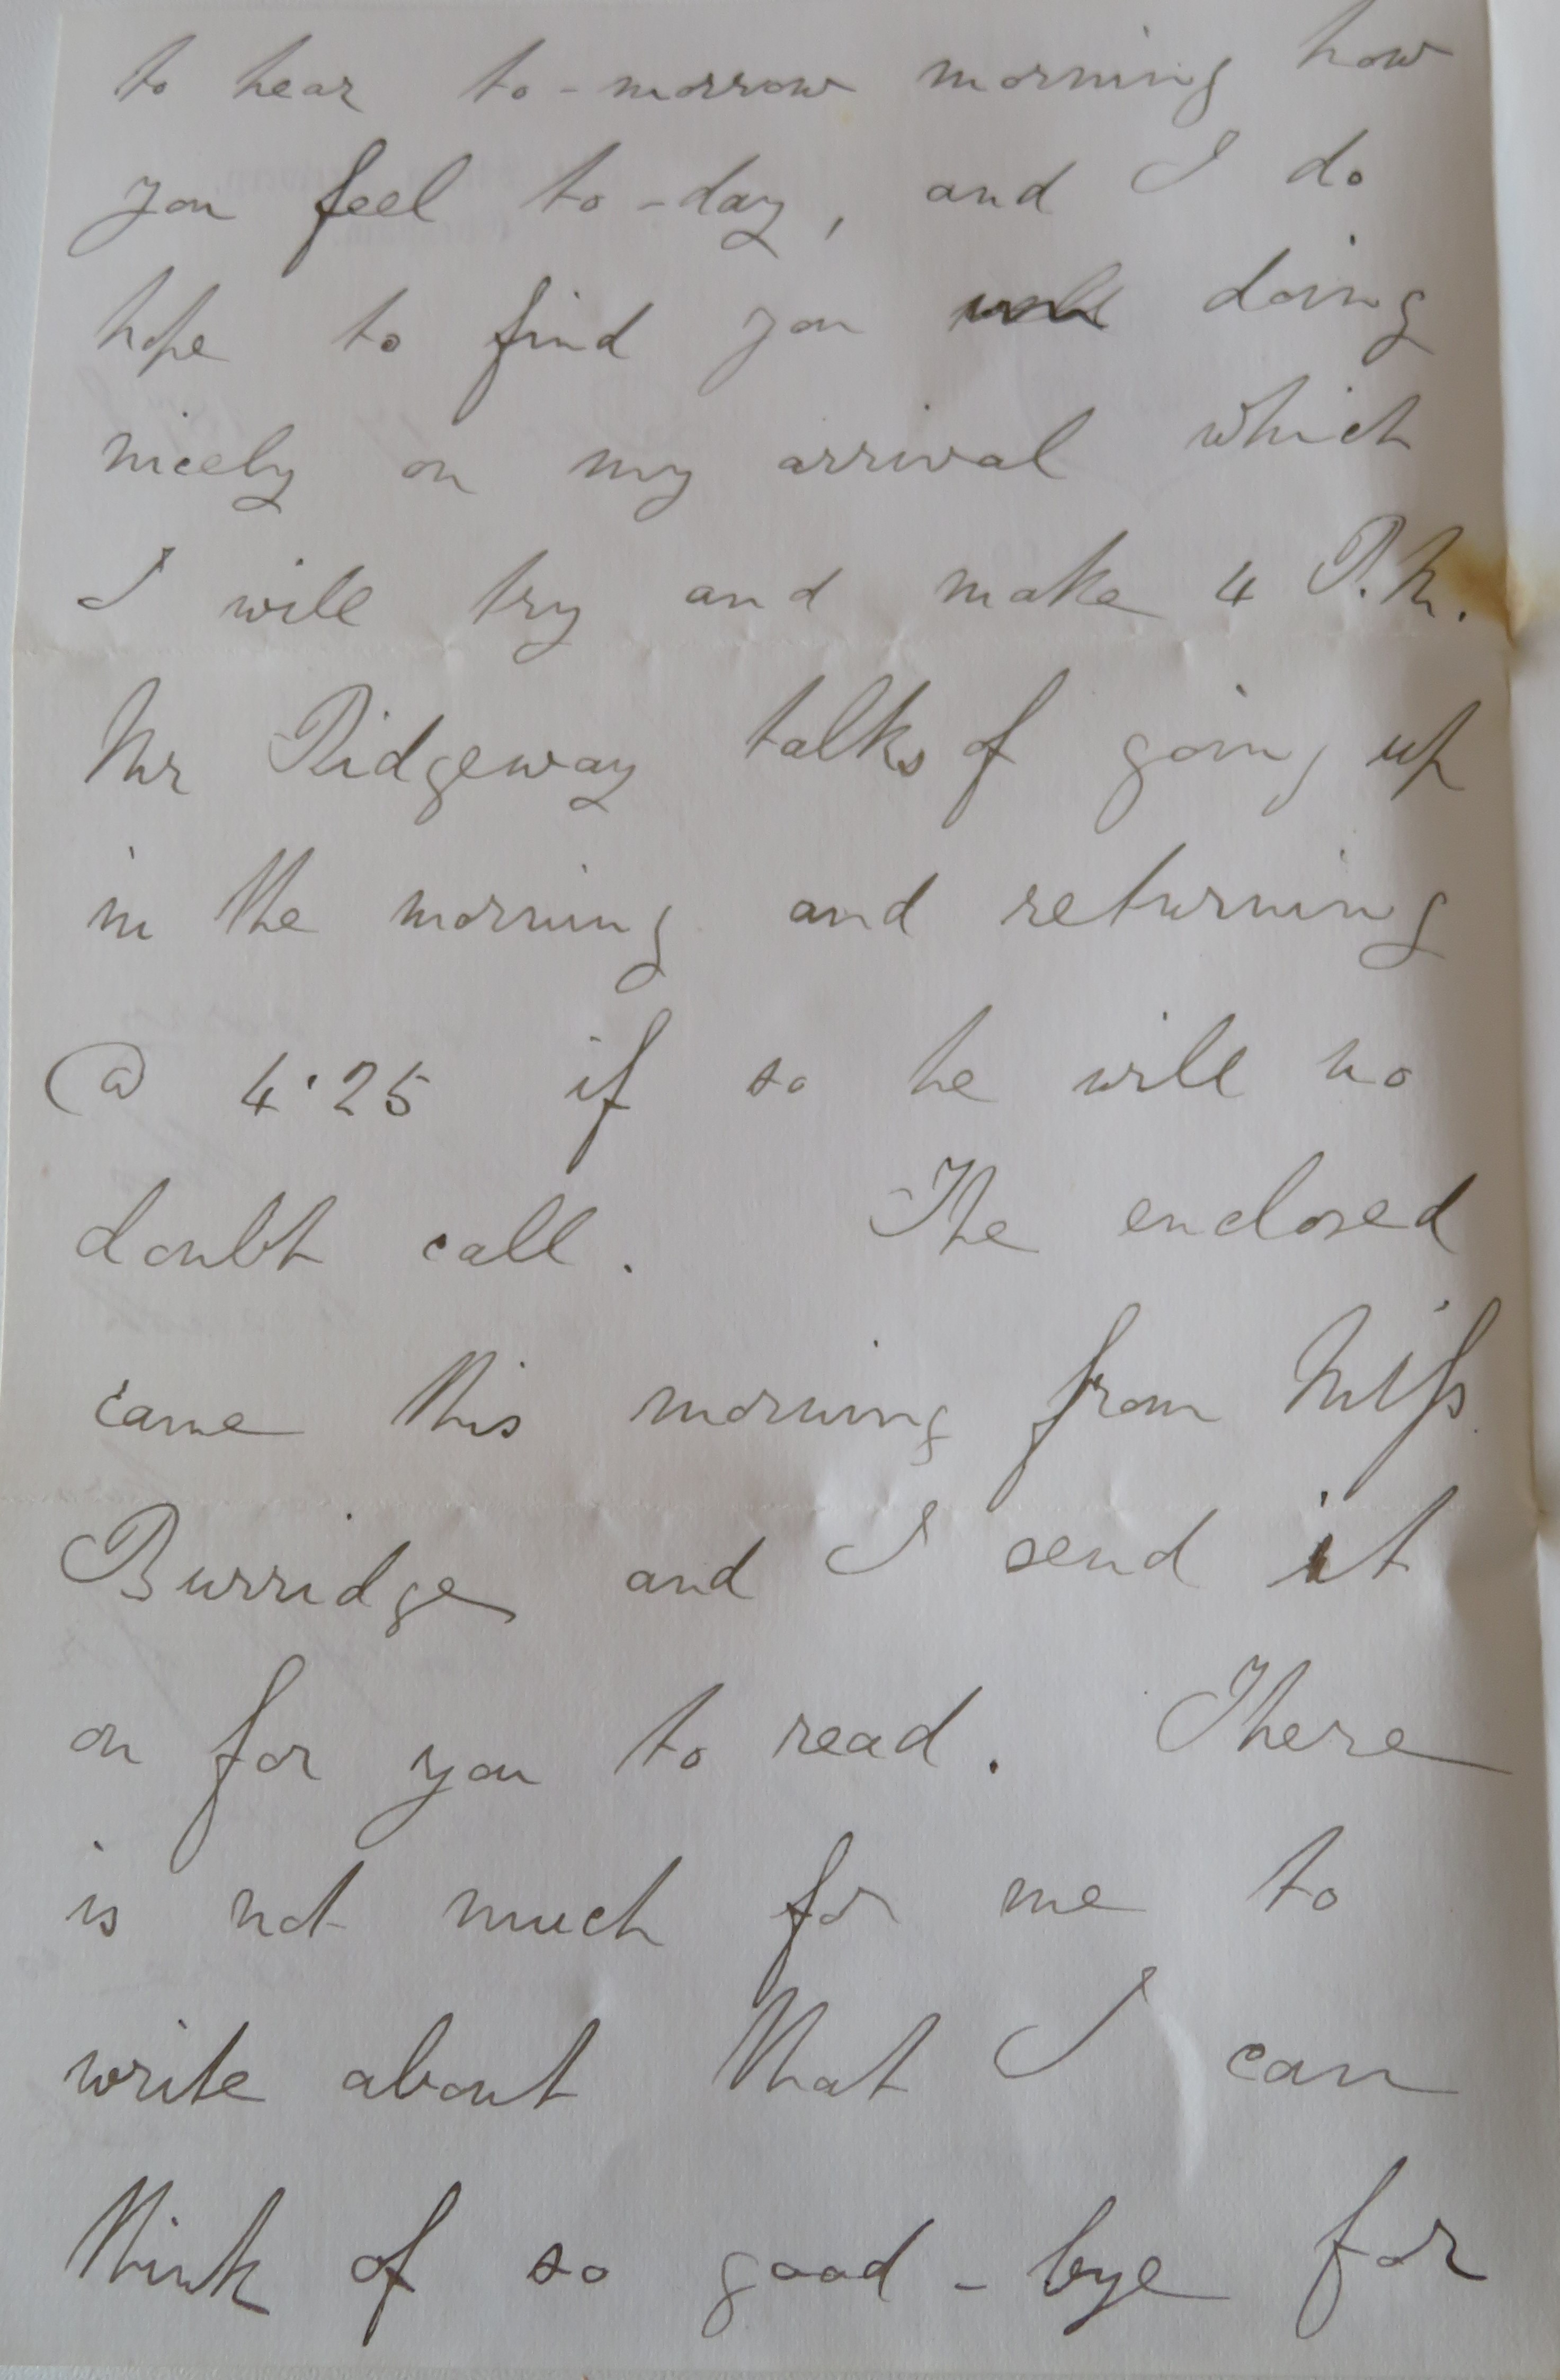 to hear to-morrow morning how
you feel to-day, and I do
hope to find you well doing
nicely on my arrival which
I will try and make 4 P.M.
Mr Ridgeway talks of going up
in the morning and returning
@ 4·25 if so he will no
doubt call. The enclosed
came this morning from Miſs
Burridge and I send it
on for you to read. There
is not much for me to
write about that I can
think of so good-bye for